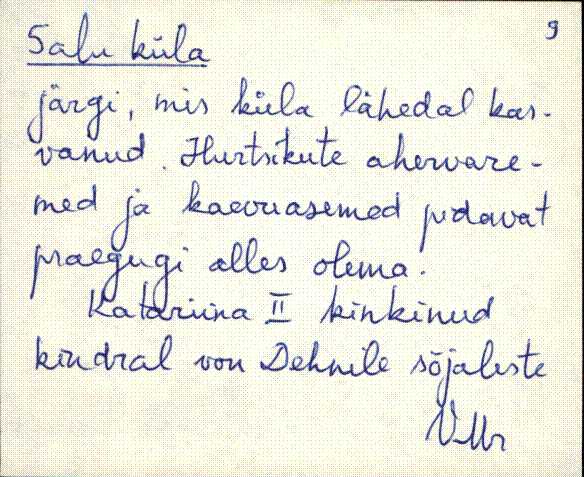 9
Salu küla
järgi, mis küla lähedal kas-
vanud. Hurtsikute aherware-
med ja kaevuasemed pidavat
praegugi alles olema.
Katariina II kinkinud
kindral von Dehnile sõjaliste